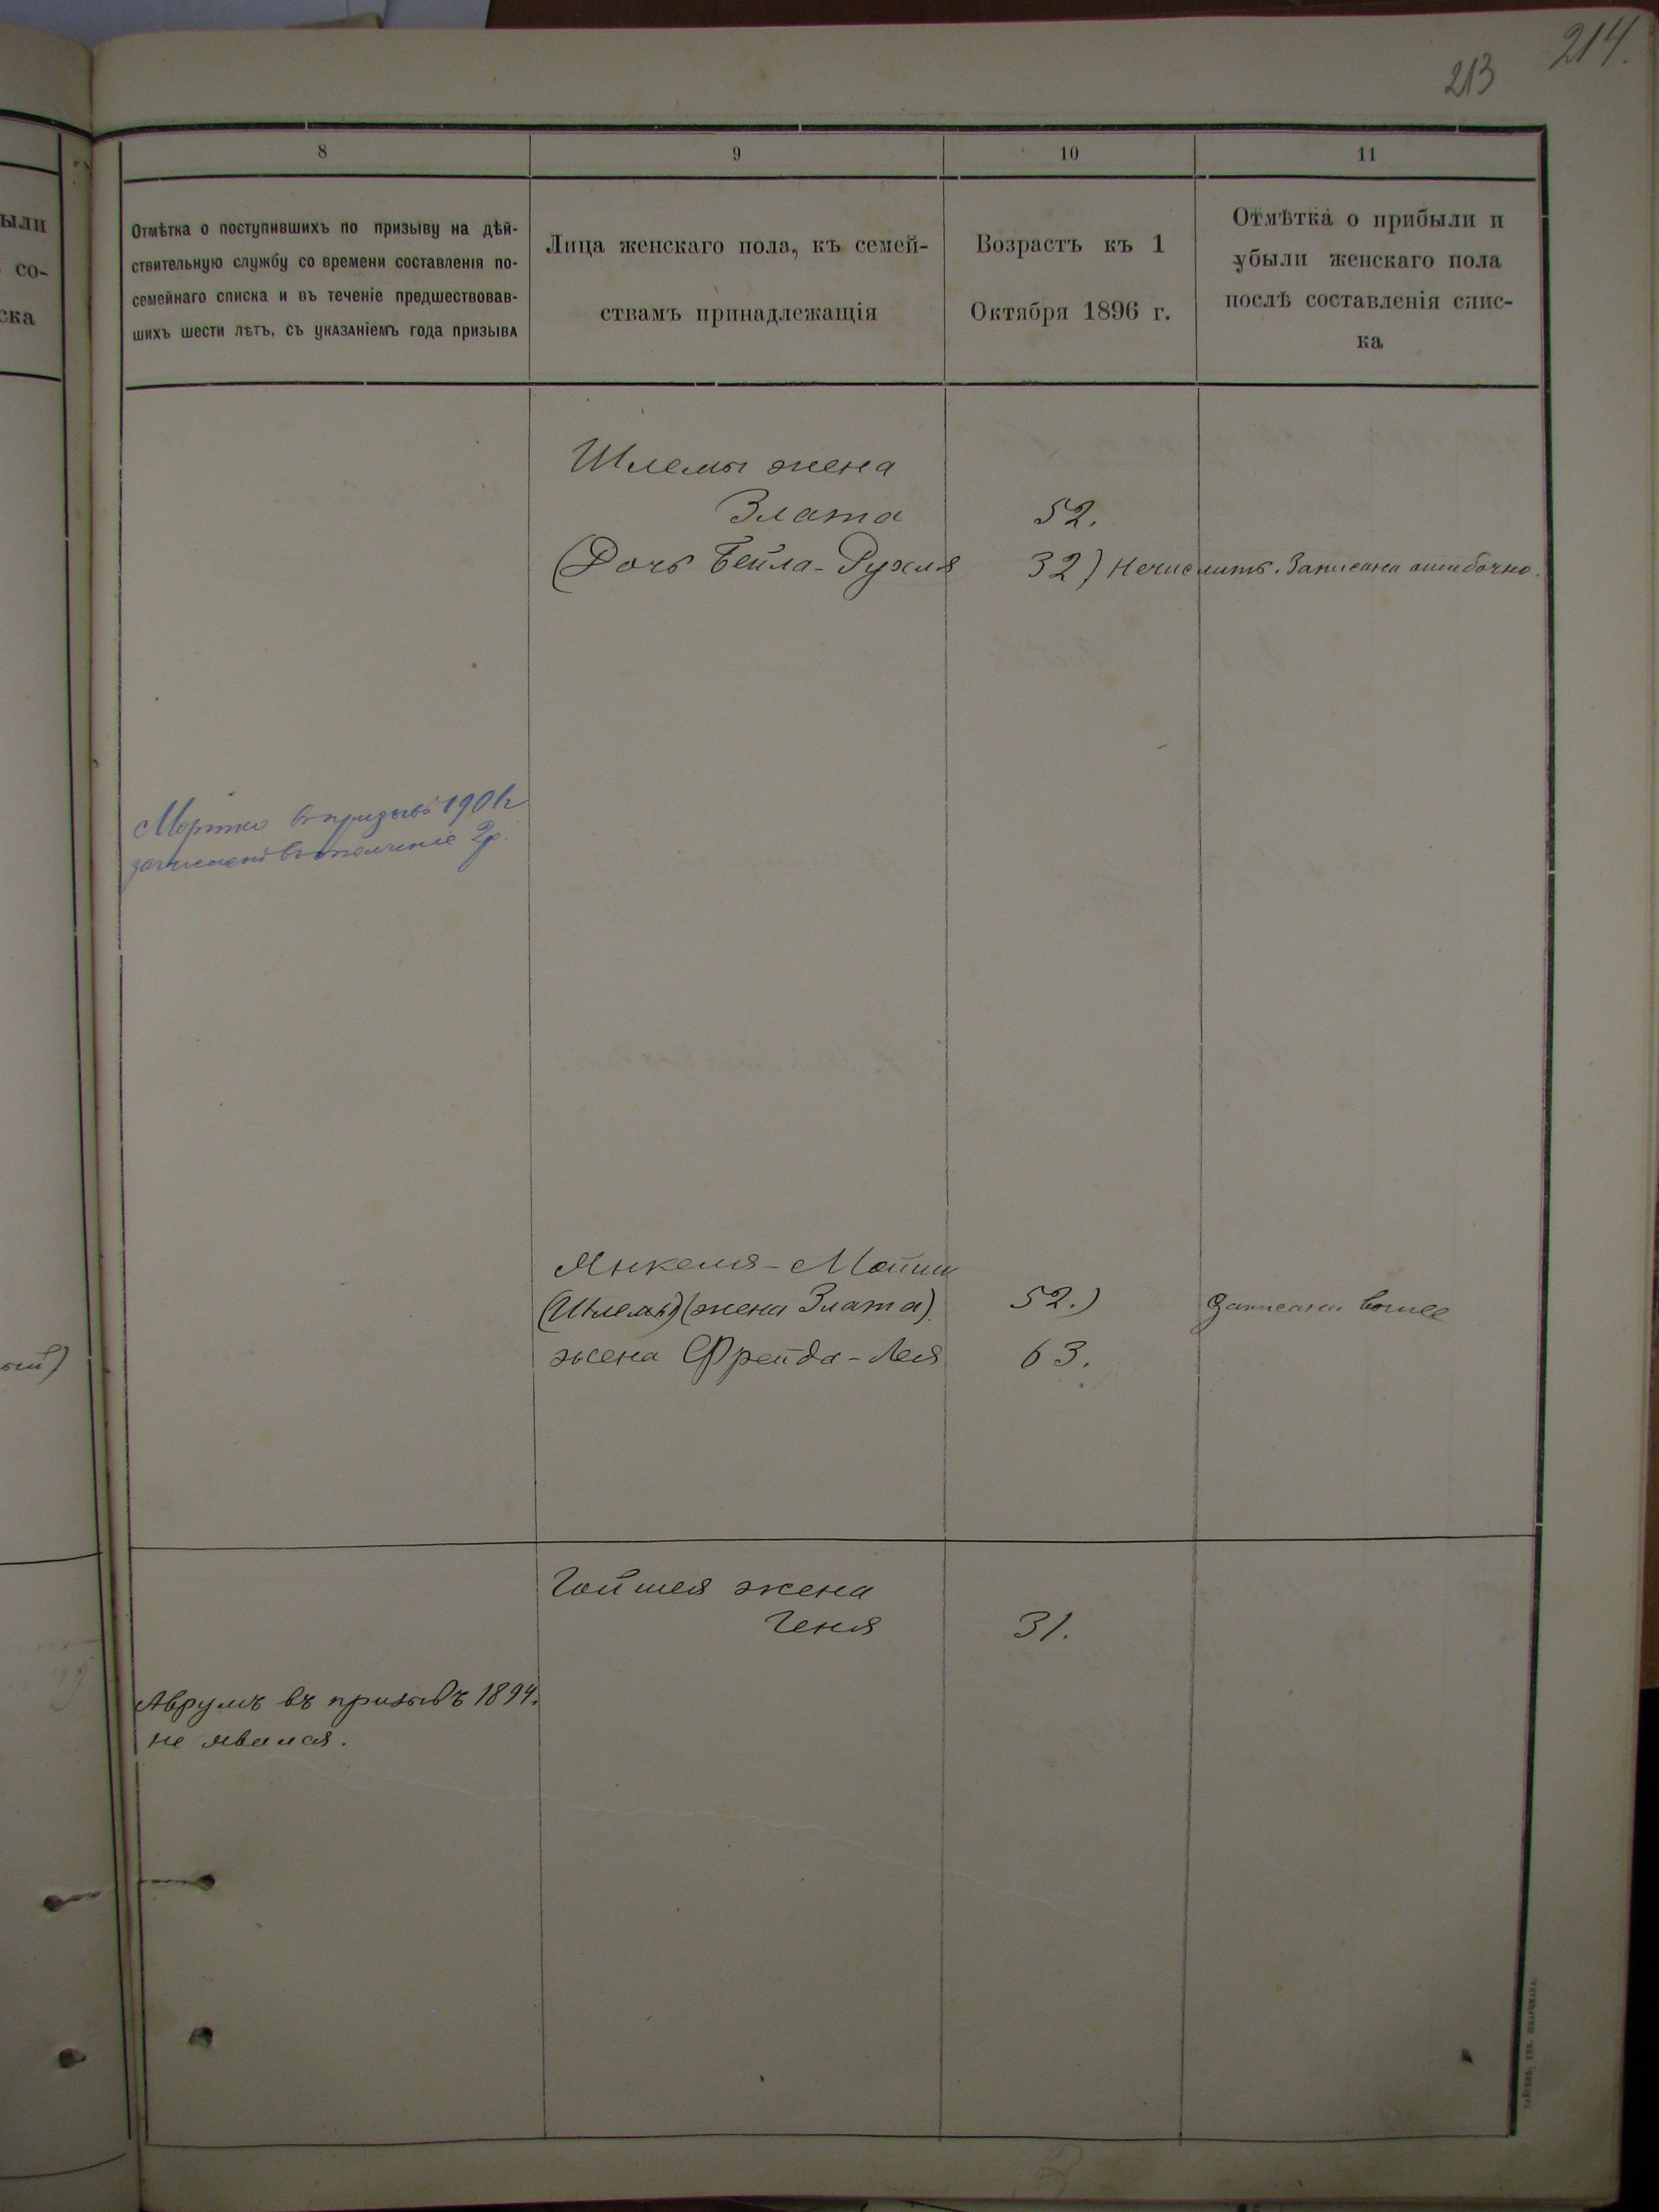 214.
213
ыли
со-
ска
8
9
10
11
Отмѣтка о поступившихъ по призыву на дѣй-
ствительную службу со времени составленія по-
семейнаго списка и въ теченіе предшествовав-
шихъ шести лѣтъ, съ указаніемъ года призыва
Лица женскаго пола, къ семей-
ствамъ принадлежащія
Возрастъ къ 1
Октября 1896 г.
Отмѣтка о прибыли и
убыли женскаго пола
послѣ составленія спис-
ка
Шлемы жена
Злата 52.
(Дочь Бейла-Рухля 32) Нечислить. Записана ошибочно.
въ призывъ 1901г
зачисленъ въ ополченіе 2р.
Янкеля-
(Шлемы) (жена Злата) 52.) Записана выше
жена Фрейда-Лея 63.
Гойшея жена
Геня 31.
Аврумъ въ призывъ 1894.
не явился.